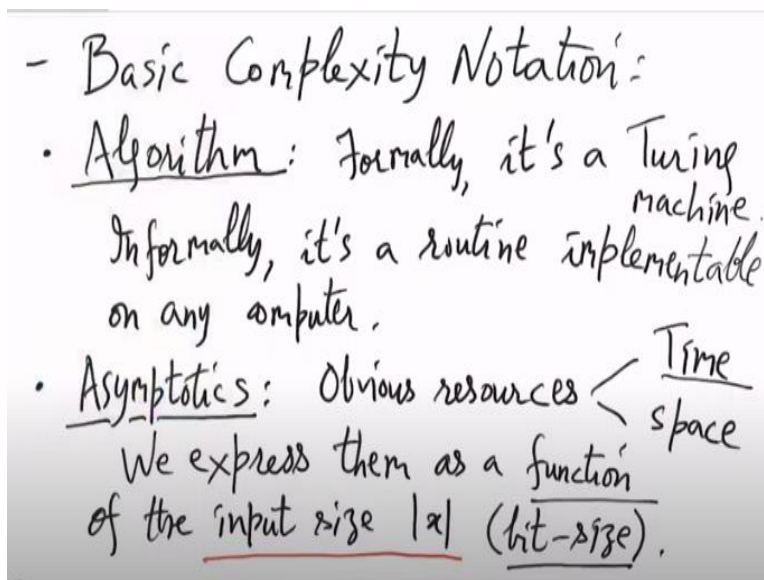 - Basic Complexity Notation:
• Algorithm: Formally, it's a Turing
machine.
Informally, it's a routine implementable
on any computer.
• Asymptotics: Obvious resources < Time
space
We express them as a function
of the input size |x| (bit-size).